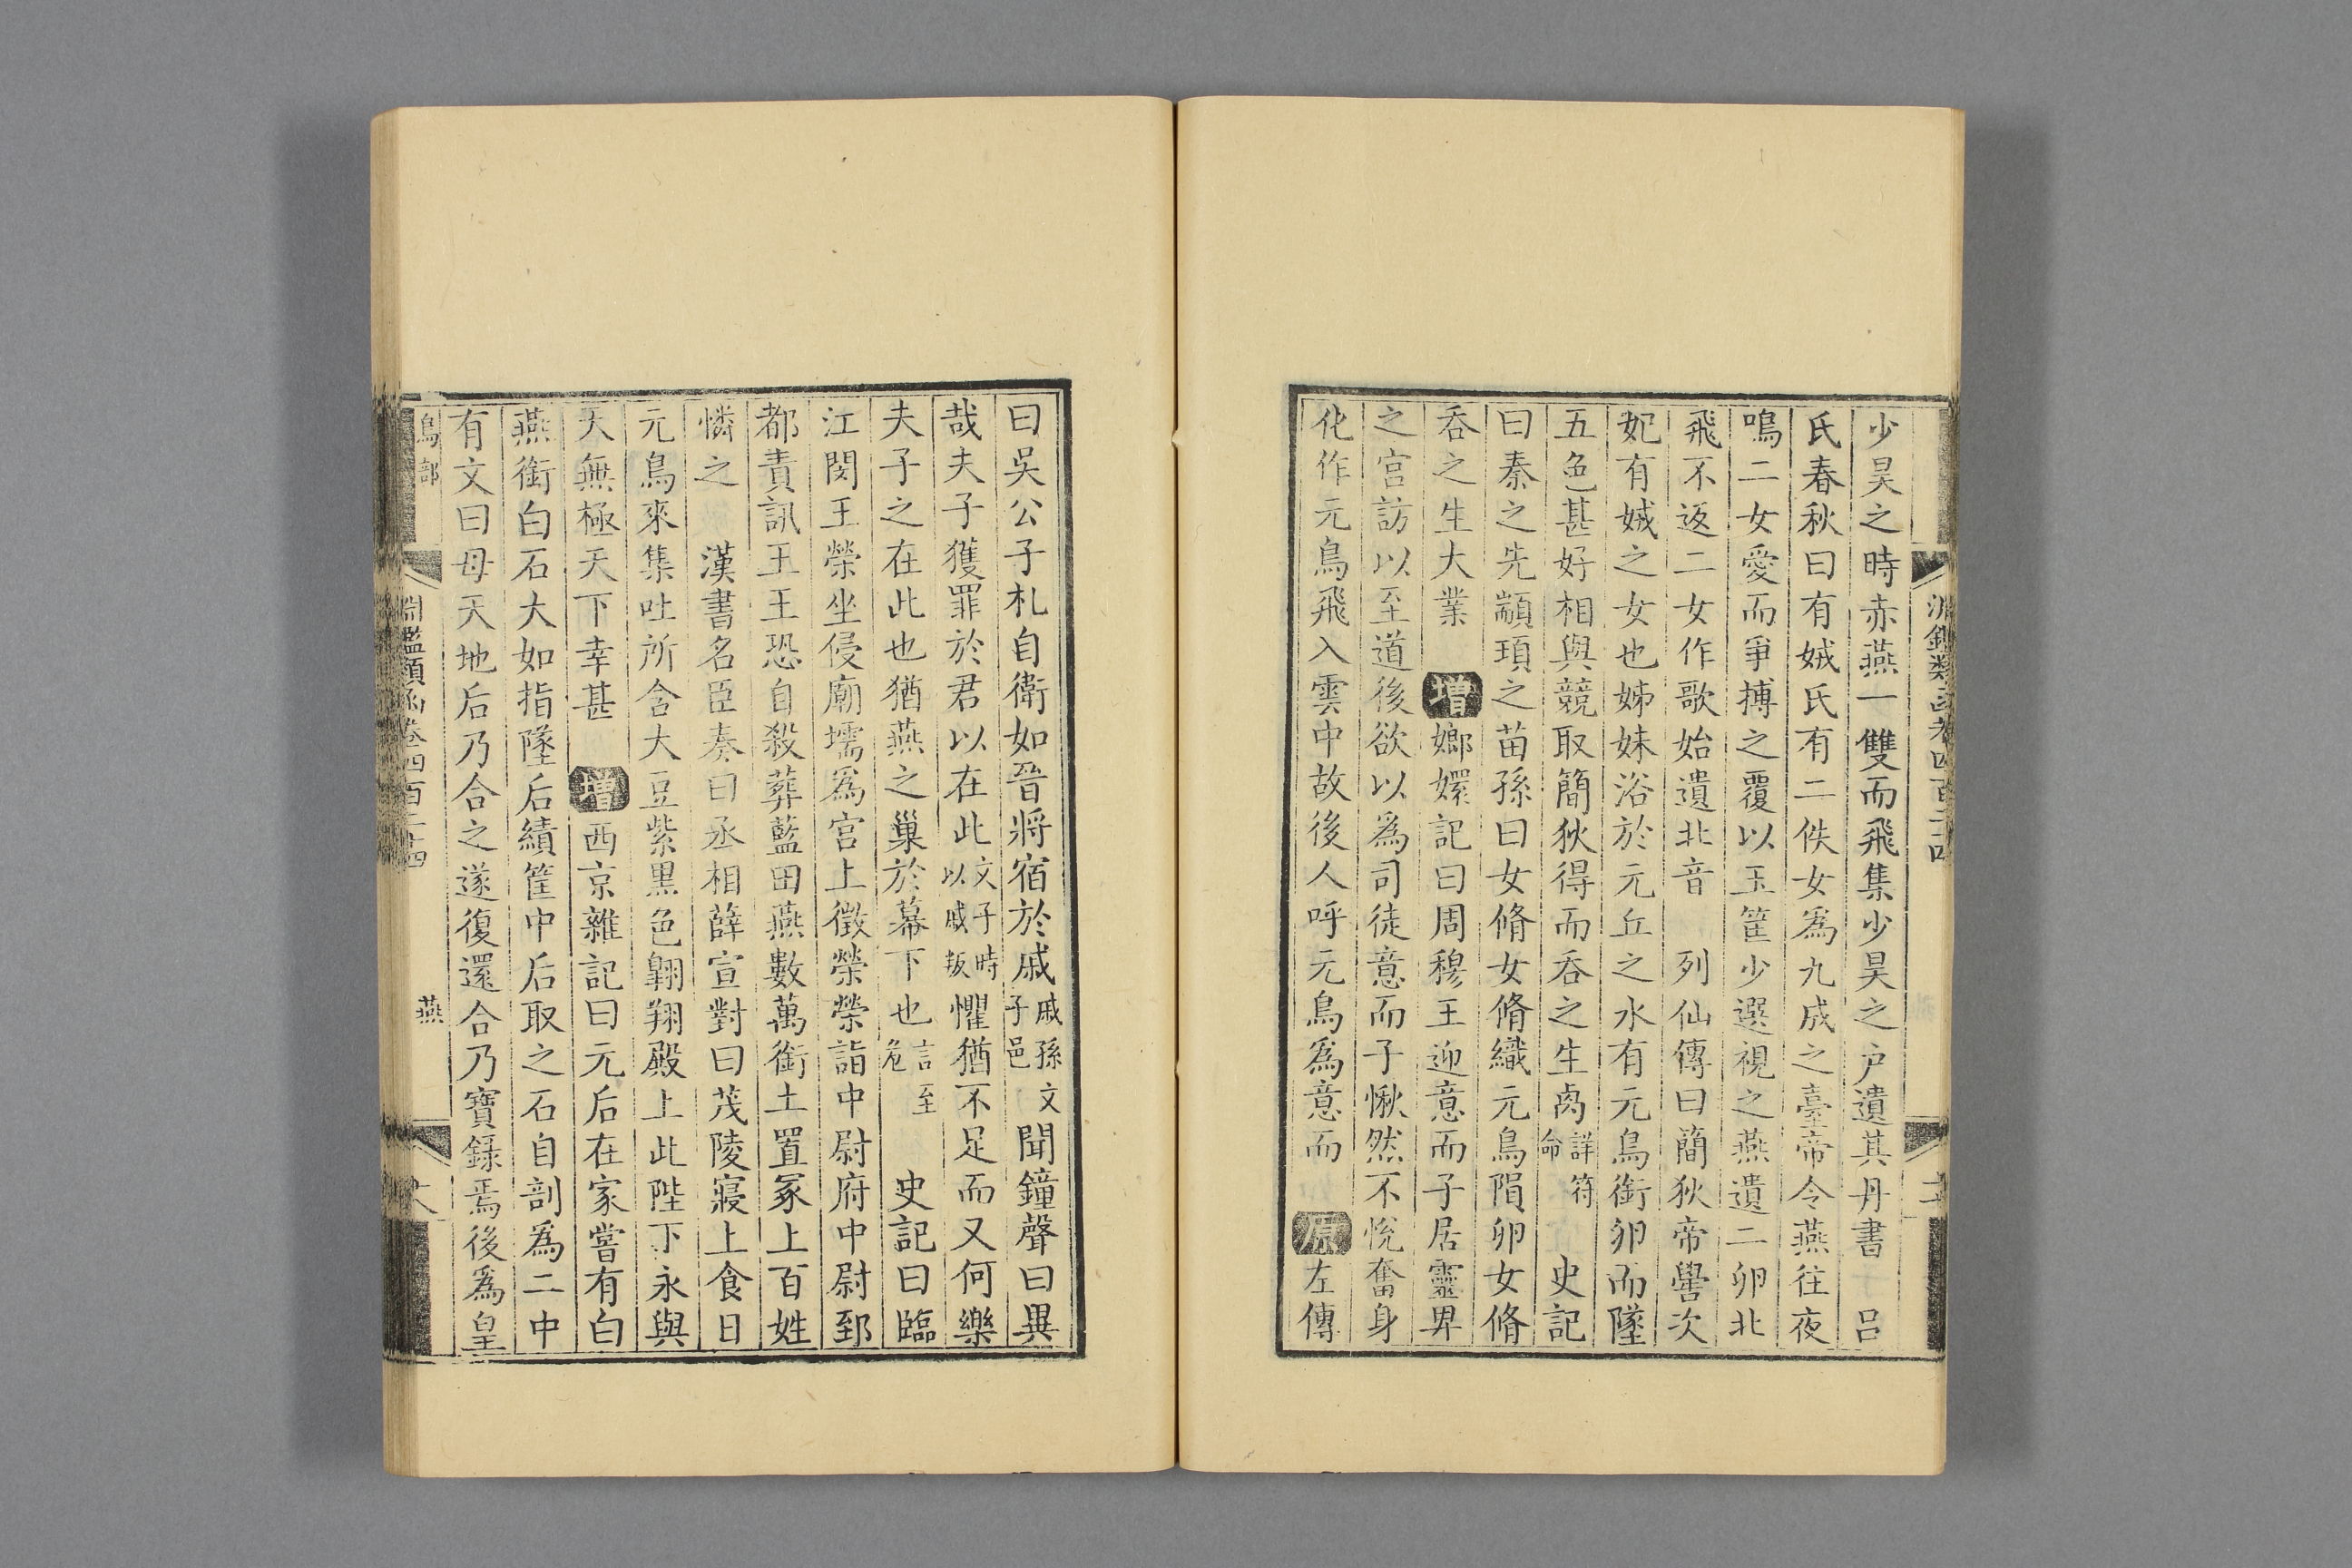 少昊之時赤燕一雙而飛集少昊之户遺其丹書 呂
氏春秋曰有娀氏有二佚女爲九成之臺帝令燕往夜
鳴二女愛而爭搏之覆以玉筐少選視之燕遺二卵北
飛不返二女作歌始遺北音 列仙傳曰簡狄帝嚳次
妃有娀之女也姊妹浴於元丘之水有元鳥銜卵而墜
五色甚好相與競取簡狄得而吞之生卨詳符命 史記
曰秦之先顓頊之苗孫曰女脩女脩織元鳥隕卵女脩
吞之生大業 增嫏嬛記曰周穆王迎意而子居靈卑
之宮訪以至道後欲以爲司徒意而子愀然不悅奮身
化作元鳥飛入雲中故後人呼元鳥爲意而 原左傳
曰吳公子札自衛如晉將宿於戚戚孫文子邑聞鐘聲曰異
哉夫子獲罪於君以在此文子時以戚叛懼猶不足而又何樂
夫子之在此也猶燕之巢於幕下也言至危 史記曰臨
江閔王榮坐侵廟壖爲宮上徵榮榮詣中尉府中尉郅
都責訊王王恐自殺葬藍田燕數萬銜土置冢上百姓
憐之 漢書名臣奏曰丞相薛宣對曰茂陵寢上食日
元鳥來集吐所含大豆紫黑色翱翔殿上此陛下永與
天無極天下幸甚 增西京雜記曰元后在家嘗有白
燕銜白石大如指墜后績筐中后取之石自剖爲二中
有文曰母天地后乃合之遂復還合乃寶錄焉後爲皇
鳥部 淵鑑類函卷四百二十四 燕